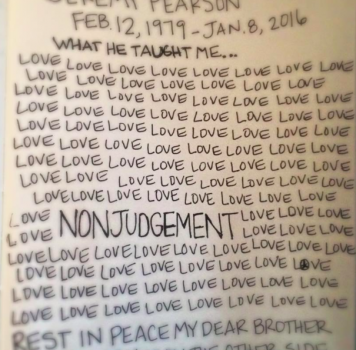 JEREMY PEARSON
FEB. 12, 1979 - JAN. 8, 2016
WHAT HE TAUGHT ME...
LOVE LOVE LOVE LOVE LOVE LOVE LOVE LOVE
LOVE LOVE LOVE LOVE LOVE LOVE LOVE
LOVE LOVE LOVE LOVE LOVE LOVE LOVE LOVE
LOVE LOVE LOVE LOVE LOVE LOVE LOVE LOVE
LOVE LOVE LOVE LOVE LOVE LOVE LOVE LOVE
LOVE LOVE LOVE LOVE LOVE LOVE LOVE LOVE
LOVE LOVE LOVE LOVE LOVE LOVE LOVE LOVE
LOVE LOVE LOVE LOVE LOVE LOVE LOVE LOVE
LOVE LOVE LOVE LOVE LOVE LOVE LOVE LOVE
LOVE LOVE LOVE LOVE
NONJUDGEMENT
LOVE LOVE LOVE LOVE
LOVE LOVE LOVE LOVE LOVE LOVE LOVE LOVE LOVE
LOVE LOVE LOVE LOVE LOVE LOVE LOVE LOVE
LOVE LOVE LOVE LOVE LOVE LOVE LOVE LOVE
LOVE LOVE LOVE LOVE LOVE LOVE LOVE LOVE
REST IN PEACE MY DEAR BROTHER
THE OTHER SIDE